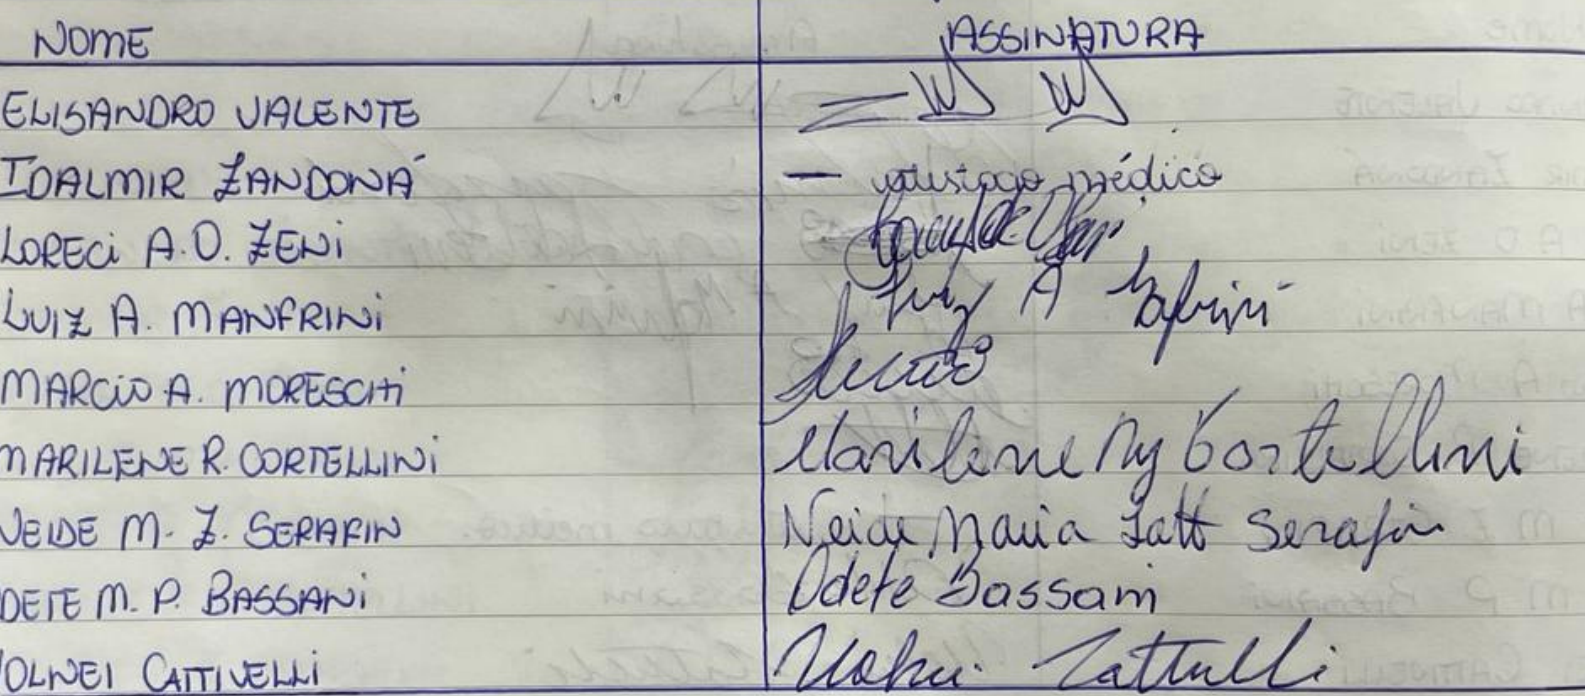 NOME ASSINATURA
ELISANDRO VALENTE
IDALMIR ZANDONÁ — atestado médico
LORECI A.D. ZENI
LUIZ A. MANFRINI Luiz A
MARCIO A. MORESCHI
MARILENE R. CORTELLINI Marilene Cortellini
NEIDE M. Z. SERAFIN Neide Maria Zatt Serafin
ODETE M. P. BASSANI Odete Bassani
VOLNEI CATTIVELLI